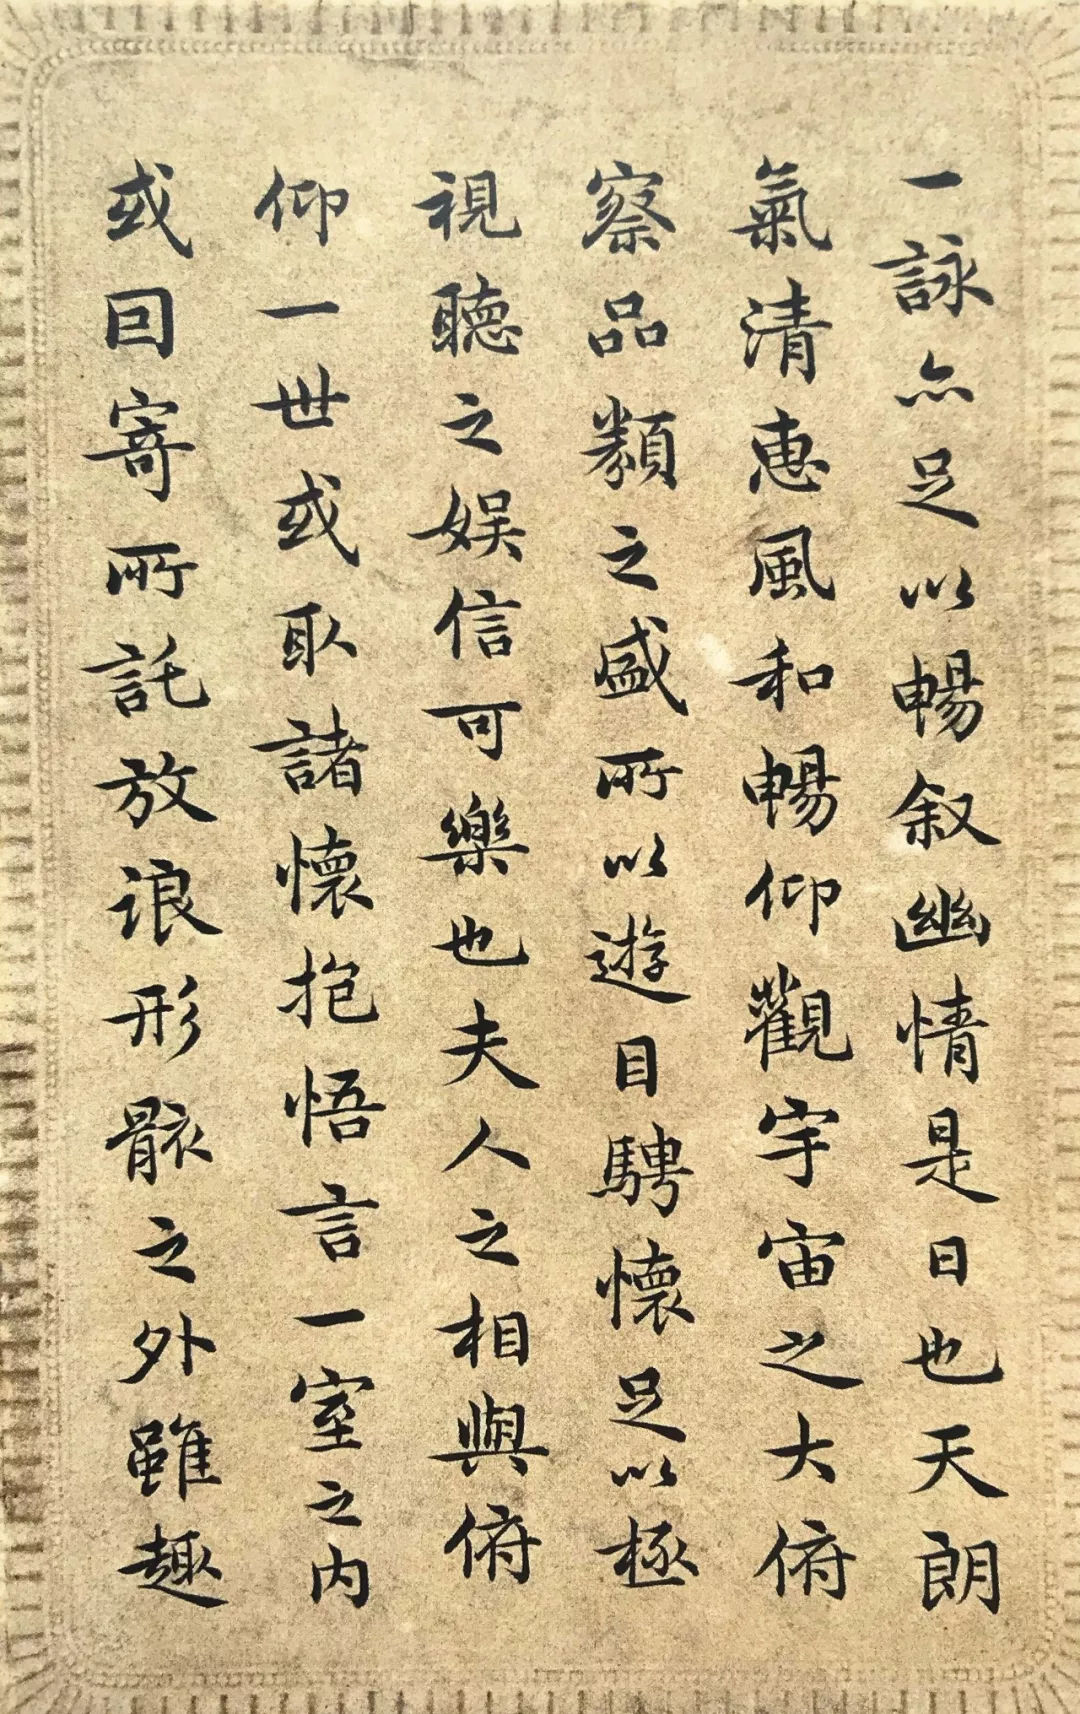 一詠亦足以暢叙幽情是日也天朗
氣清惠風和暢仰觀宇宙之大俯
察品類之盛所以遊目騁懷足以極
視聽之娱信可樂也夫人之相與俯
仰一世或取諸懷抱悟言一室之内
或因寄所託放浪形骸之外雖趣